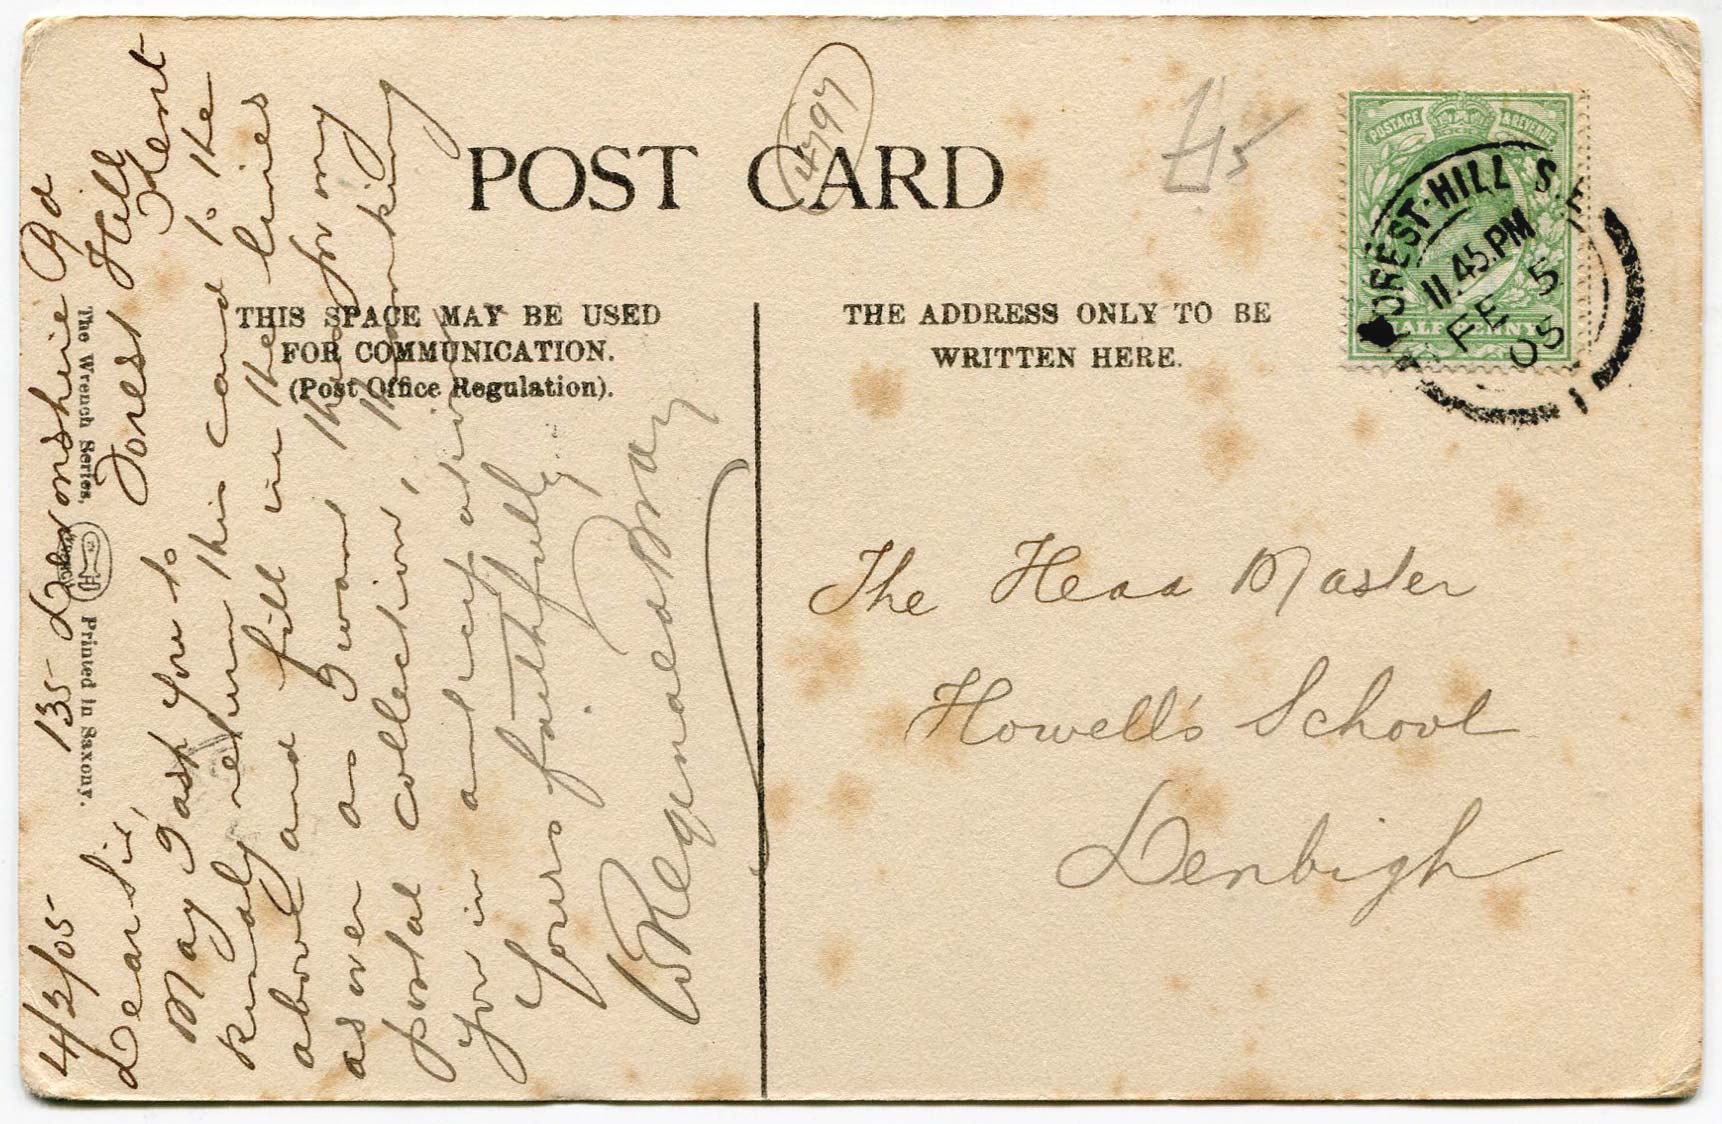 POST CARD
4797
£15
THIS SPACE MAY BE USED
FOR COMMUNICATION.
(Post Office Regulation).
THE ADDRESS ONLY TO BE
WRITTEN HERE.
POSTAGE & REVENUE
HALFPENNY
FOREST·HILL S.E
11.45.PM
FE 5
05
The Wrench Series, Printed in Saxony.
4/2/05 135 Devonshire Rd
Forest Hill
Kent
Dear Sir,
May I ask you to
kindly return this card to the
above and fill in the lines
as over as I want these for my
postal collection, thanking
you in anticipation
Yours faithfully
W Reginald Bray
The Head Master
Howell's School
Denbigh